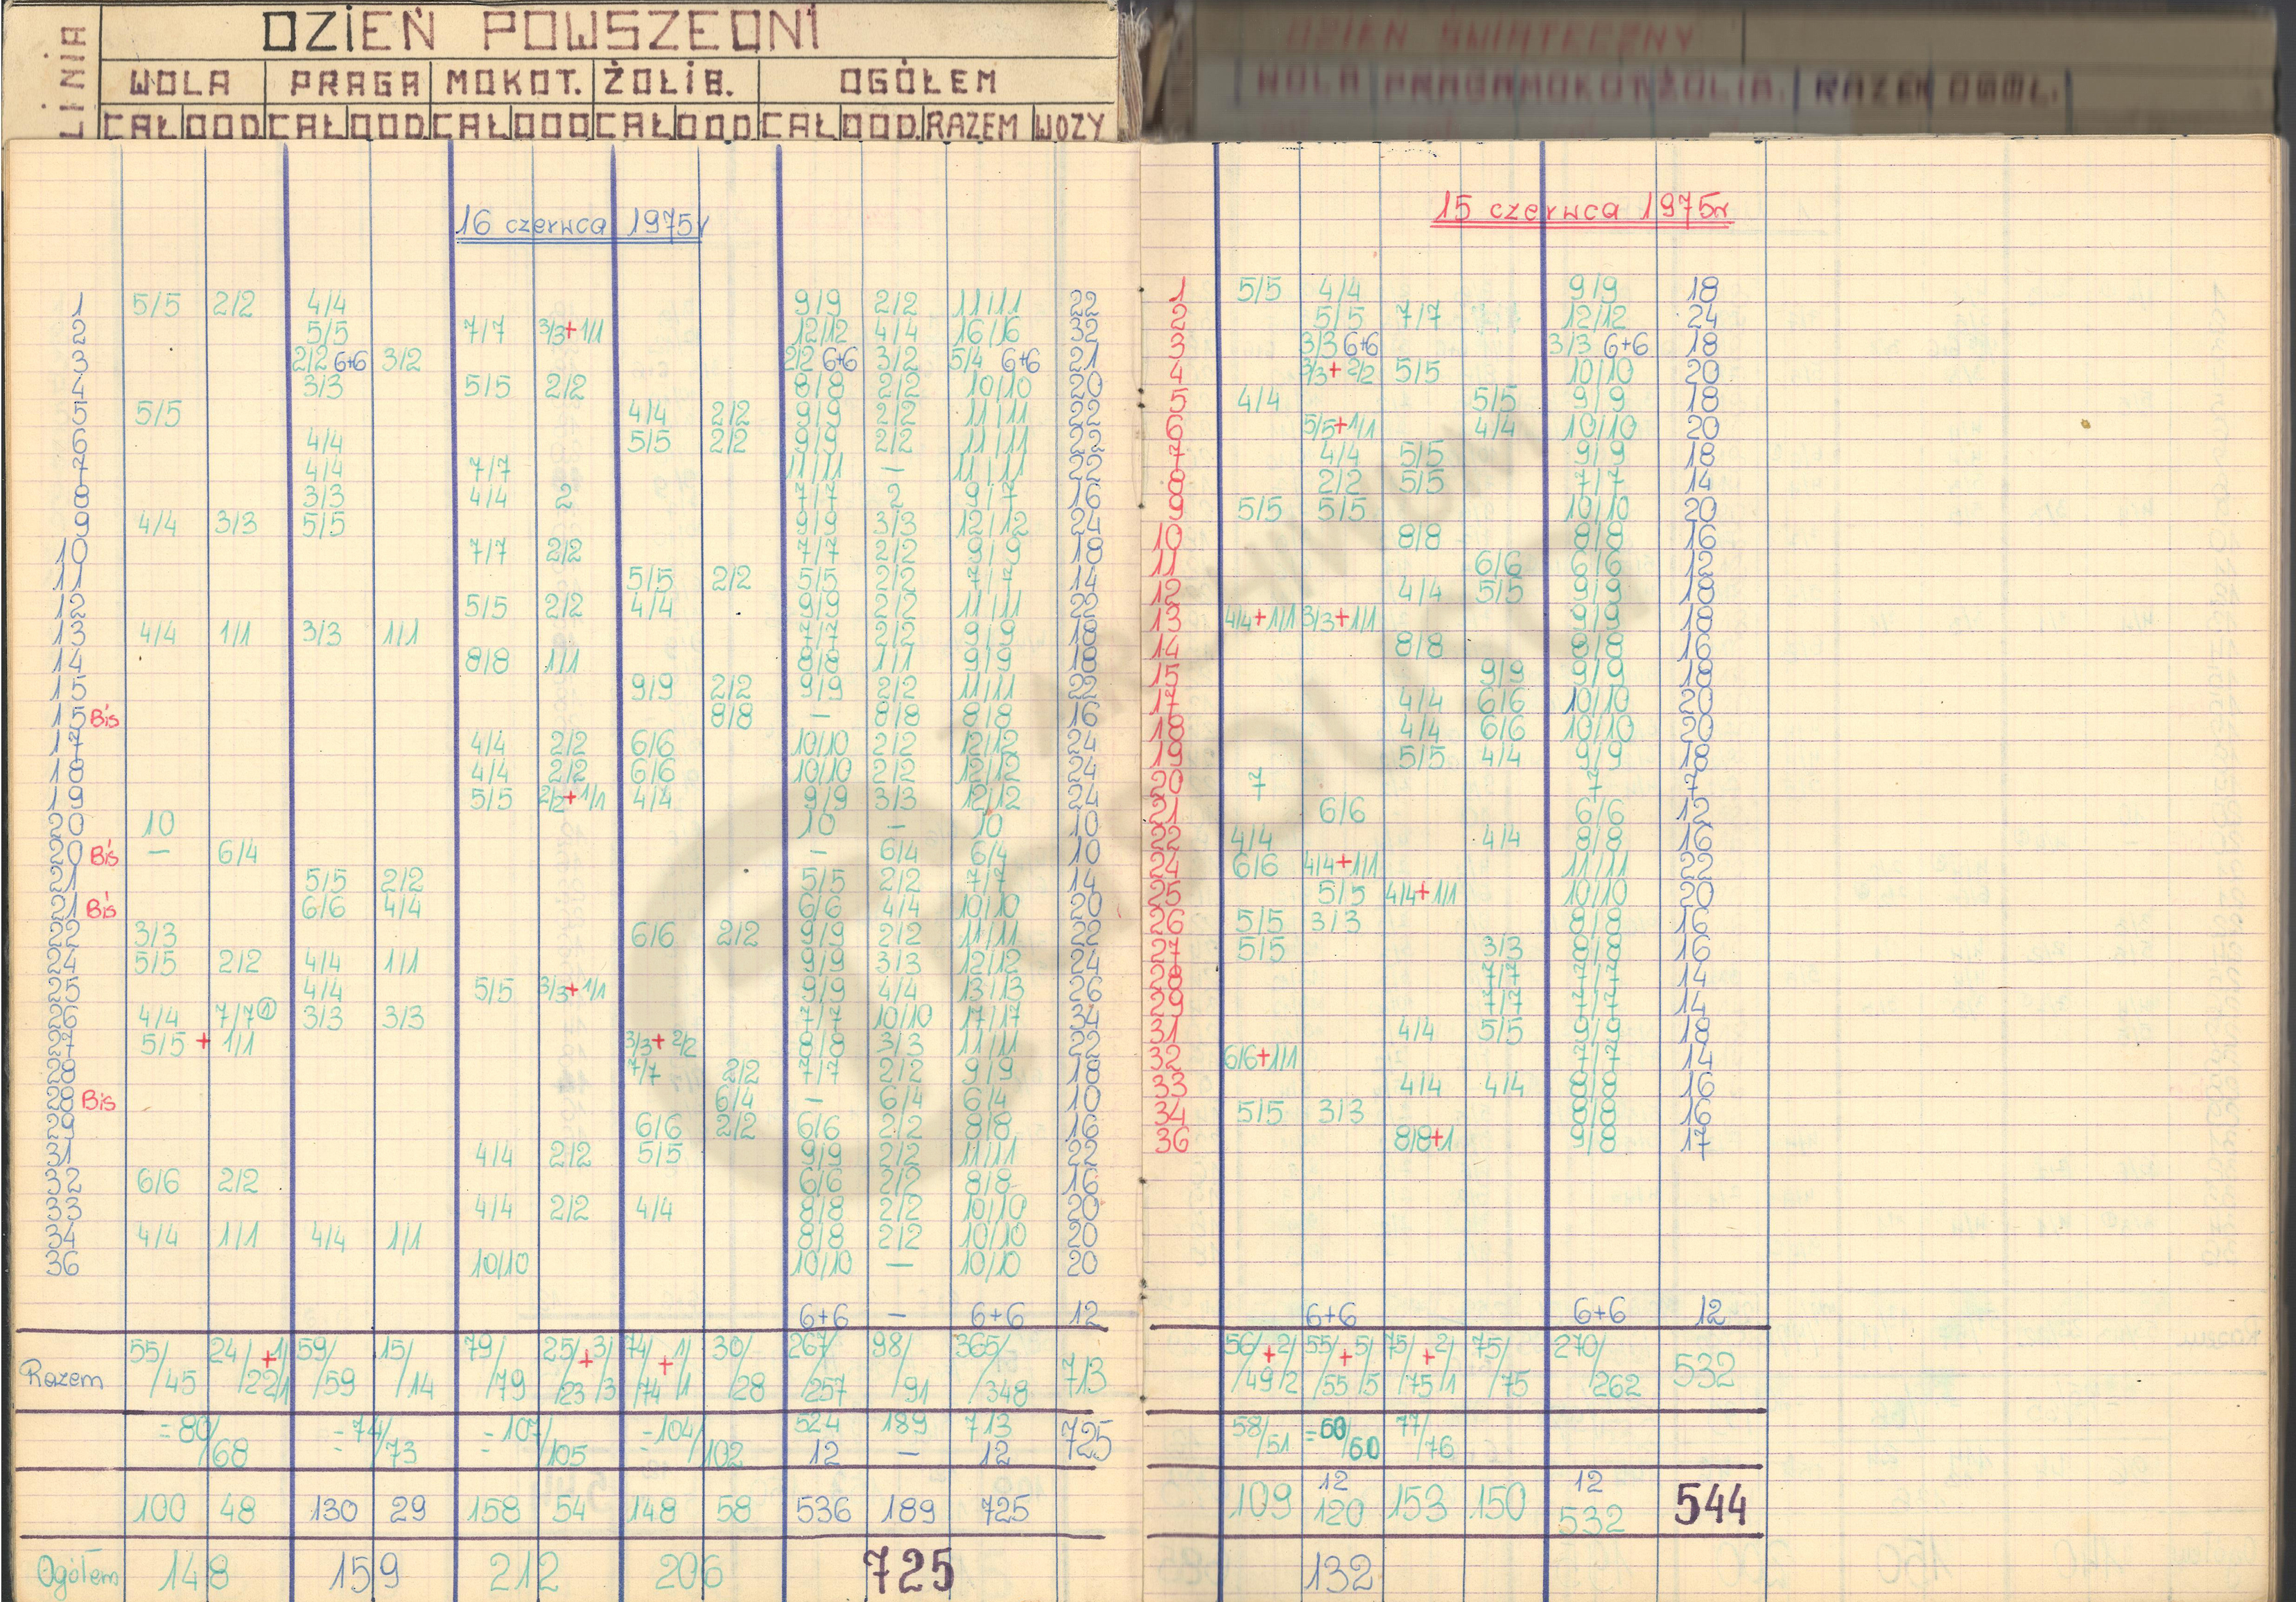 LINIA
DZIEŃ POWSZEDNI
WOLA PRAGA MOKOT. ŻOLIB. OGÓŁEM
CAŁ DOD CAŁ DOD CAŁ DOD CAŁ DOD CAŁ DOD RAZEM WOZY
16 czerwca 1975r
1 5/5 2/2 4/4 9/9 2/2 11/11 22
2 5/5 7/7 3/3+1/1 12/12 4/4 16/16 32
3 2/2 6+6 3/2 2/2 6+6 3/2 5/4 6+6 21
4 3/3 5/5 2/2 8/8 2/2 10/10 20
5 5/5 4/4 2/2 9/9 2/2 11/11 22
6 4/4 5/5 2/2 9/9 2/2 11/11 22
7 4/4 7/7 11/11 — 11/11 22
8 3/3 4/4 2 7/7 2 9/7 16
9 4/4 3/3 5/5 9/9 3/3 12/12 24
10 7/7 2/2 7/7 2/2 9/9 18
11 5/5 2/2 5/5 2/2 7/7 14
12 5/5 2/2 4/4 9/9 2/2 11/11 22
13 4/4 1/1 3/3 1/1 7/7 2/2 9/9 18
14 8/8 1/1 8/8 1/1 9/9 18
15 9/9 2/2 9/9 2/2 11/11 22
15 Bis 8/8 — 8/8 8/8 16
17 4/4 2/2 6/6 10/10 2/2 12/12 24
18 4/4 2/2 6/6 10/10 2/2 12/12 24
19 5/5 2/2+1/1 4/4 9/9 3/3 12/12 24
20 10 10 — 10 10
20 Bis — 6/4 — 6/4 6/4 10
21 5/5 2/2 5/5 2/2 7/7 14
21 Bis 6/6 4/4 6/6 4/4 10/10 20
22 3/3 6/6 2/2 9/9 2/2 11/11 22
24 5/5 2/2 4/4 1/1 9/9 3/3 12/12 24
25 4/4 5/5 3/3+1/1 9/9 4/4 13/13 26
26 4/4 7/7① 3/3 3/3 7/7 10/10 17/17 34
27 5/5 + 1/1 3/3+2/2 8/8 3/3 11/11 22
28 7/7 2/2 7/7 2/2 9/9 18
28 Bis 6/4 — 6/4 6/4 10
29 6/6 2/2 6/6 2/2 8/8 16
31 4/4 2/2 5/5 9/9 2/2 11/11 22
32 6/6 2/2 6/6 2/2 8/8 16
33 4/4 2/2 4/4 8/8 2/2 10/10 20
34 4/4 1/1 4/4 1/1 8/8 2/2 10/10 20
36 10/10 10/10 — 10/10 20
6+6 — 6+6 12
Razem 55/45 24/22+1/1 59/59 15/14 79/79 25/23+3/3 74/74+1/1 30/28 267/257 98/91 365/348 713
=80/68 =74/73 =107/105 =104/102 524 189 713 725
12 — 12
100 48 130 29 158 54 148 58 536 189 725
Ogółem 148 159 212 206 725
DZIEŃ ŚWIĄTECZNY
WOLA PRAGA MOKOT ŻOLIB. RAZEM OGÓŁ.
15 czerwca 1975r
1 5/5 4/4 9/9 18
2 5/5 7/7 12/12 24
3 3/3 6+6 3/3 6+6 18
4 3/3+2/2 5/5 10/10 20
5 4/4 5/5 9/9 18
6 5/5+1/1 4/4 10/10 20
7 4/4 5/5 9/9 18
8 2/2 5/5 7/7 14
9 5/5 5/5 10/10 20
10 8/8 8/8 16
11 6/6 6/6 12
12 4/4 5/5 9/9 18
13 4/4+1/1 3/3+1/1 9/9 18
14 8/8 8/8 16
15 9/9 9/9 18
17 4/4 6/6 10/10 20
18 4/4 6/6 10/10 20
19 5/5 4/4 9/9 18
20 7 7 7
21 6/6 6/6 12
22 4/4 4/4 8/8 16
24 6/6 4/4+1/1 11/11 22
25 5/5 4/4+1/1 10/10 20
26 5/5 3/3 8/8 16
27 5/5 3/3 8/8 16
28 7/7 7/7 14
29 7/7 7/7 14
31 4/4 5/5 9/9 18
32 6/6+1/1 7/7 14
33 4/4 4/4 8/8 16
34 5/5 3/3 8/8 16
36 8/8+1 9/8 17
6+6 6+6 12
56/49+2/2 55/55+5/5 75/75+2/1 75/75 270/262 532
58/51 =60/60 77/76
12 12
109 120 153 150 532 544
132